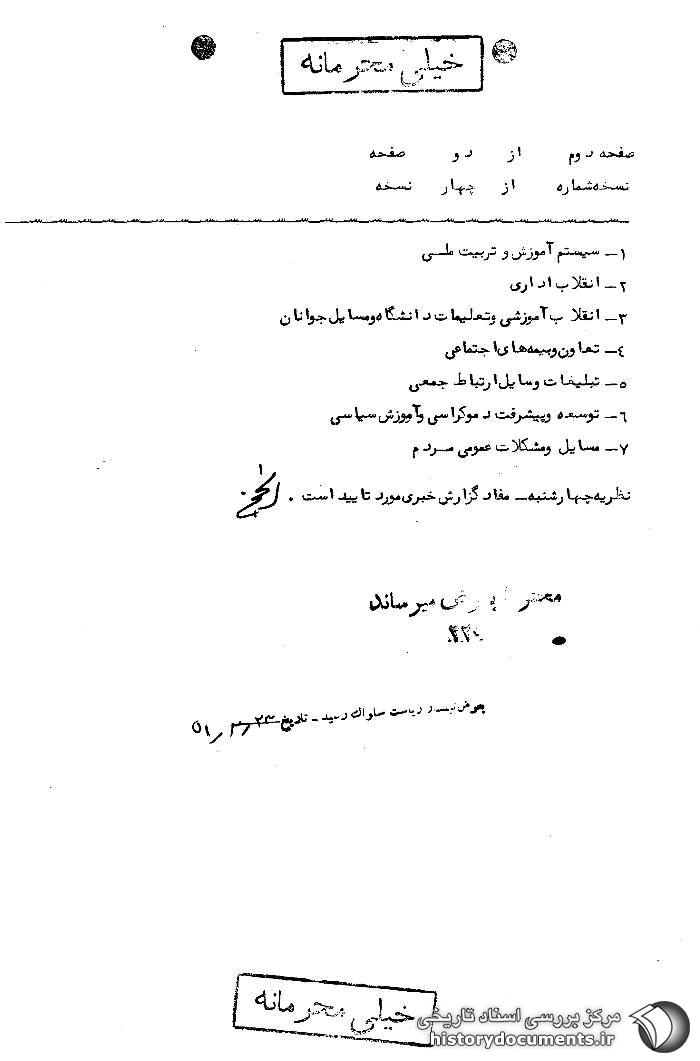 خیلی محرمانه
صفحه دوم از دو صفحه
نسخه شماره از چهار نسخه
۱ـ سیستم آموزش و تربیت ملی
۲ـ انقلاب اداری
۳ـ انقلاب آموزشی و تعلیمات دانشگاه و مسایل جوانان
٤ـ تعاون و بیمه های اجتماعی
۵ـ تبلیغات و سایل ارتباط جمعی
۶ـ توسعه و پیشرفت دموکراسی و آموزش سیاسی
۷ـ مسایل و مشکلات عمومی مردم
نظریه چهارشنبه ـ مفاد گزارش خبری مورد تایید است .
میرساند
ریاست ساواک رسید ـ تاریخ ۵۱/۳/۲۳
خیلی محرمانه
مرکز بررسی اسناد تاریخی
historydocuments.ir